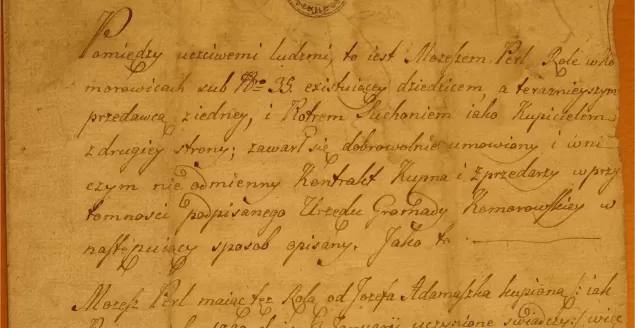 Pomiędzy uczciwemi ludzmi, to iest Mozeszem Perl, Rolę w Ko
morowicach sub Nro 35. existuiącey dziedzicem, a teraznieyszym
przedawcą ziedney, i Piotrem Suchoniem iako Kupicielem
z drugiey strony; zawarł się dobrowolnie umowiony i w ni
czym nie odmienny Kontrakt Kupna i Zprzedarzy w przy
tomnosci podpisanego Urzędu Gromady Komorowskiey w
następuiący sposob opisany. Jako to
Mozesz Perl maiąc tęż Rolą od Jozefa Adamaszka kupioną /: iak
Januarij uczynione swiadczy :/ więc